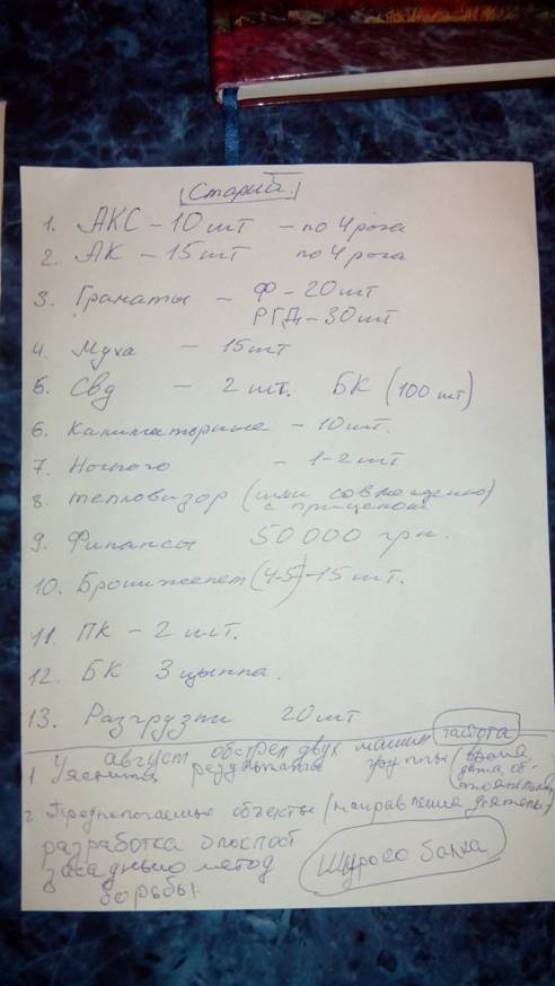 Старий
1. АКС - 10 шт - по 4 рога
2. АК - 15 шт по 4 рога
3. Гранаты - Ф - 20 шт
РГД - 30 шт
4. Муха - 15 шт
5. Свд - 2 шт. БК (100 шт)
6. Калиматорные - 10 шт.
7. Ночного - 1-2 шт
8. тепловизор (или совмещенно)
с прицелом
9. Финансы 50 000 грн.
10. Бронижелет (4-5) - 15 шт.
11. ПК - 2 шт.
12. БК 3 цынка.
13. Разгрузки 20 шт
август обстрел двух машин частота
1. Уяснить результаты группы (время
дата об-
2. Предполагаемые объекты (направления
разработка блокпост
засадный метод
борьбы.
Широко балка